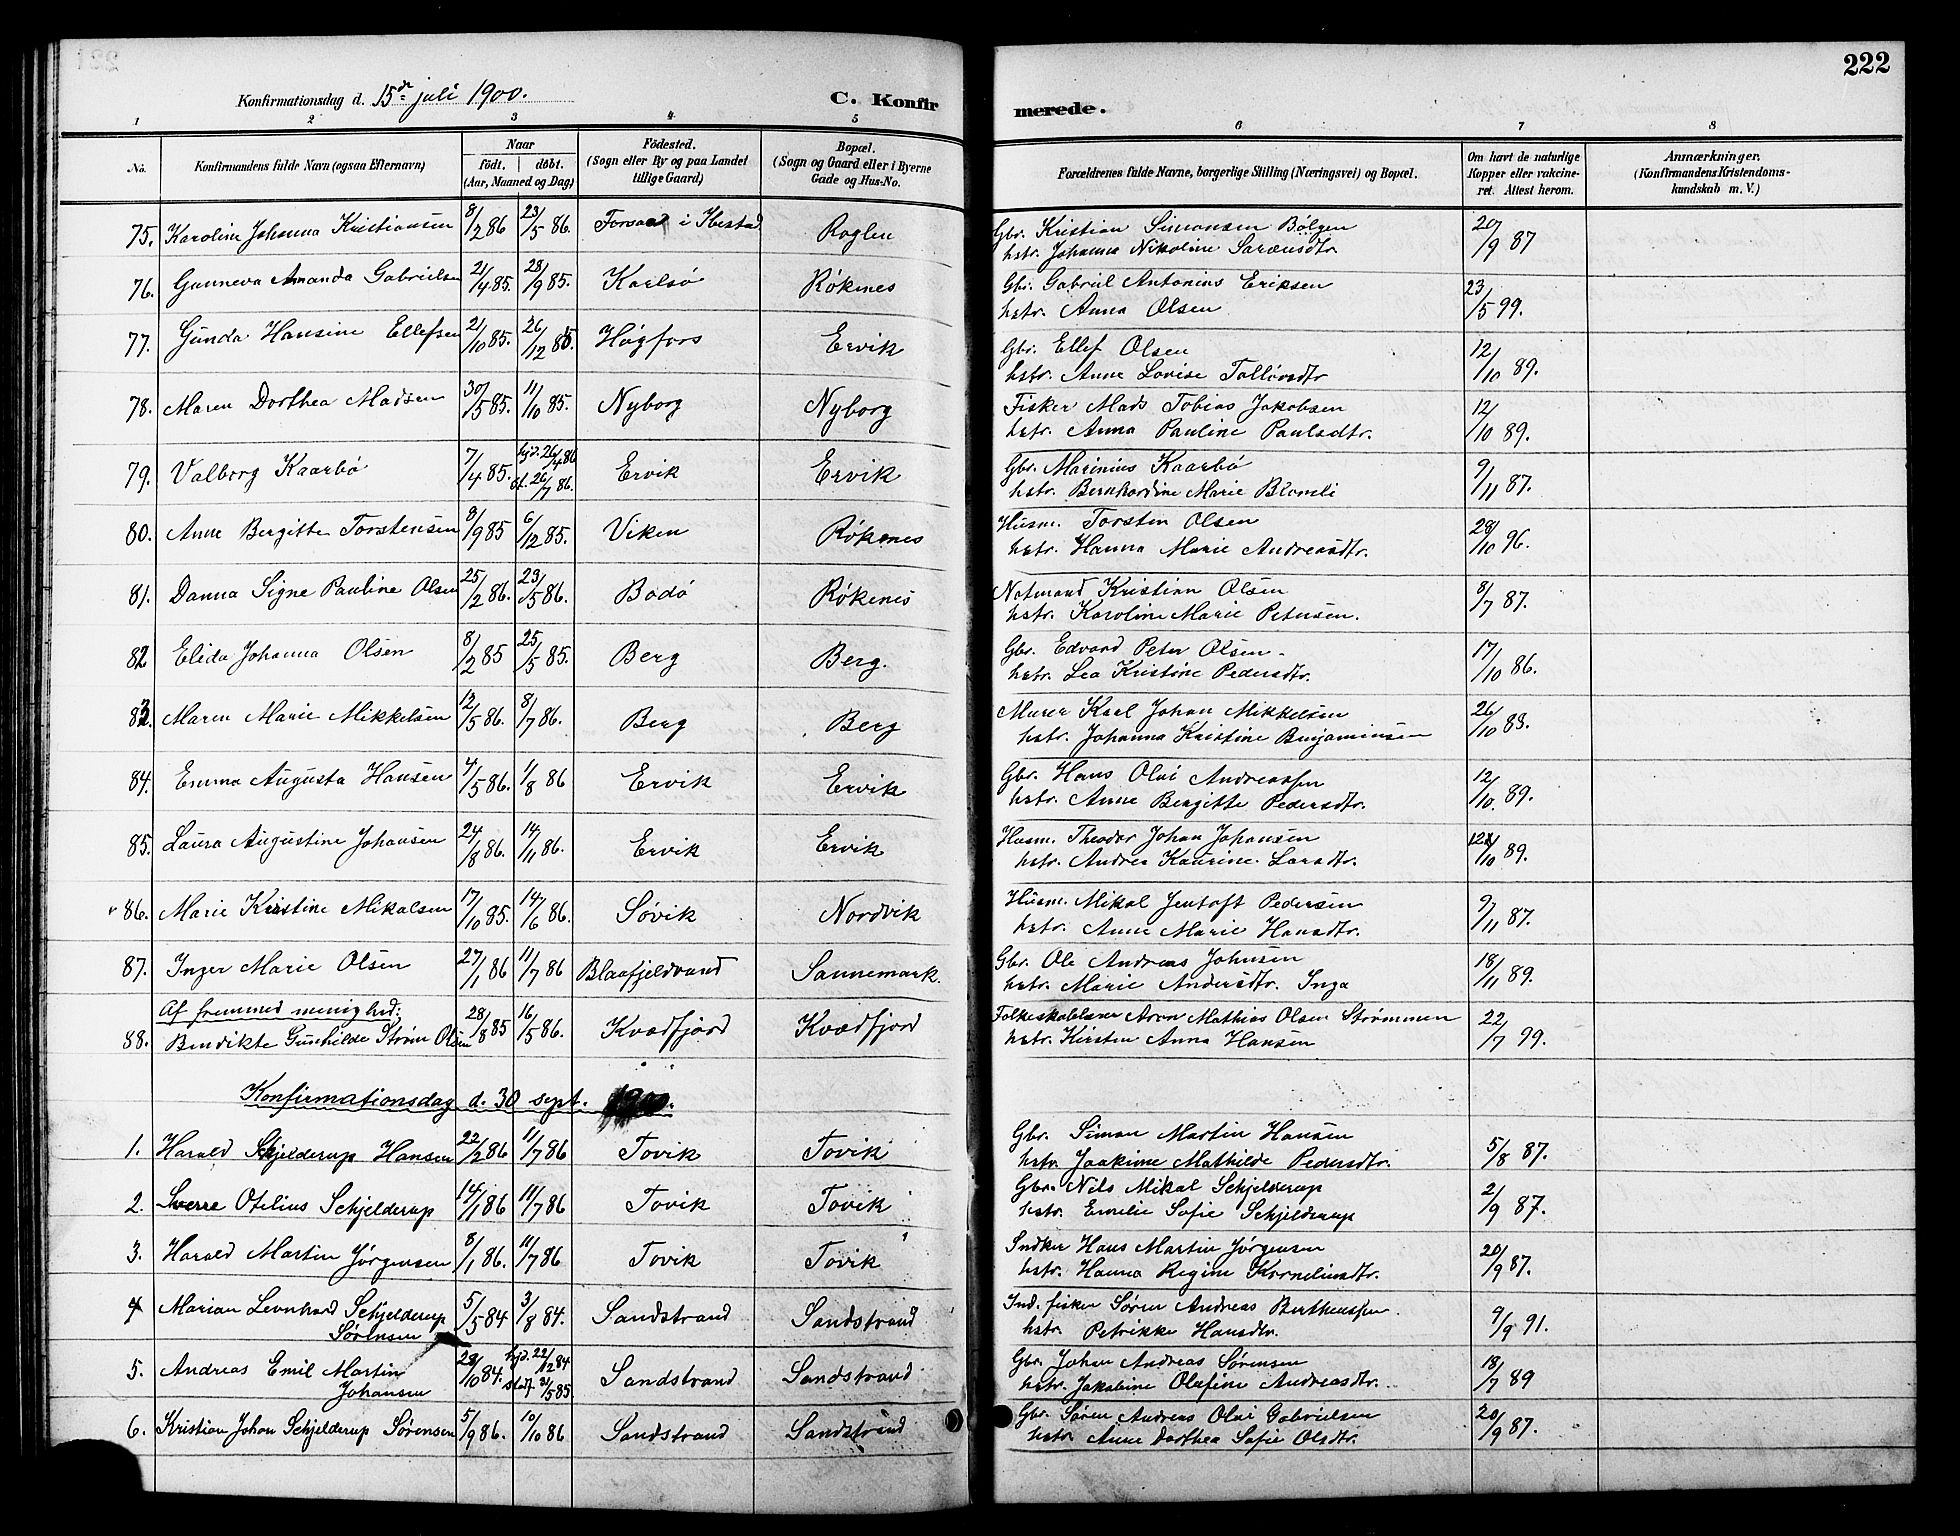 222
Konfirmationsdag d. 15de juli 1900. C. Konfirmerede.
1 2 3 4 5 6 7 8
No. Konfirmandens fulde Navn (ogsaa Efternavn) Naar födt. döbt. (Aar, Maaned og Dag) Födested. (Sogn eller By og paa Landet tillige Gaard) Bopæl. (Sogn og Gaard eller i Byerne Gade og Hus-No. Forældrenes fulde Navne, borgerlige Stilling (Næringsvei) og Bopæl. Om havt de naturlige Kopper eller vakcineret. Attest herom. Anmærkninger. (Konfirmandens Kristendomskundskab m. V.)
75. Karoline Johanna Kristiansen 8/2 86 23/5 86. i Ibestad Roglen Gbr. Kristian Simonsen Bølgen 20/9 87
hstr. Johanna Nikoline Sørensdtr
76. Gunneva Amanda Gabrielsen 21/4 85. 28/9 85. Karlsø Røkenes Gbr. Gabriel Antonius Eriksen 23/5 99.
hstr. Anna Olsen
77. Gunda Hansine Ellefsen 21/10 85. 26/12 85. Høgfors Ervik Gbr. Ellef Olsen 12/10 89.
hstr. Anne Lovise Tollevsdtr
78. Maren Dorthea Madsen 30/5 85. 11/10 85. Nyborg Nyborg Fisker Mads Tobias Jakobsen 12/10 89.
hstr. Anna Pauline Paulsdtr.
79. Valborg Kaarbø 7/4 85. hjd. 26/4 86 st. 26/7 86. Ervik Ervik Gbr. Marinius Kaarbø 9/11 87.
hstr. Bernhardine Marie Blomli
80. Anne Bergitte Torstensen 8/9 85 6/12 85. Viken Røkenes Husm. Torstin Olsen 28/10 96.
hstr. Hanna Marie Andreasdtr.
81. Danna Signe Pauline Olsen 25/2 86. 23/5 86. Bodø Røkenes Notmand Kristian Olsen 8/7 87.
hstr. Karoline Marie Petersen.
82 Elida Johanna Olsen 8/2 85 25/5 85. Berg Berg. Gbr. Edvard Peter Olsen. 17/10 86.
hstr. Lea Kristine Pedersdtr.
83. Maren Marie Mikkelsen 12/5 86. 8/7 86. Berg Berg Murer Karl Johan Mikkelsen 26/10 88.
hstr. Johanna Kristine Benjaminsen
84. Emma Augusta Hansen 4/5 86. 1/8 86 Ervik Ervik Gbr. Hans Olai Andreassen 12/10. 89.
hstr. Anne Bergitte Pedersdtr.
85. Laura Augustine Johansen 24/8 86. 14/11 86. Ervik Ervik Husm. Theodor Johan Johansen 12/10 89.
hstr. Andrea Kaurine Larsdtr.
86. Marie Kristine Mikalsen 17/10 85. 14/6 86. Søvik Nordvik Husm. Mikal Jentoft Pedersen 9/11 87.
hstr. Anne Marie Hansdtr.
87. Inger Marie Olsen 27/1 86 11/7 86 Blaafjeldvand Sannemark. Gbr. Ole Andreas Johnsen 18/11 89.
hstr. Marie Andersdtr. Inga
Af fremmed menighed:
88. Bendikte Gunhilde Strøm Olsen 28/8 85 16/5 86. Kvædfjord Kvædfjord Folkeskolelærer Aron Mathias Olsen Strømmen 22/7 99.
hstr. Kirsten Anna Hansen
Konfirmationsdag d. 30 sept. 1900.
1. Harald Schjelderup Hansen 22/2 86 11/7 86 Tovik Tovik Gbr. Simon Martin Hansen 5/8 87.
hstr. Joakime Mathilde Pedersdtr.
2. Sverre Otelius Schjelderup 14/1 86 11/7 86 Tovik Tovik Gbr. Nils Mikal Schjelderup 2/9 87.
hstr. Emelie Sofie Schjelderup
3. Harald Martin Jørgensen 8/1 86. 11/7 86 Tovik Tovik Sndker Hans Martin Jørgensen 20/9 87.
hstr. Hanna Regine Korneliusdtr.
4 Marian Leonhard Schjelderup 5/5 84 3/8 84. Sandstrand Sandstrand Ind. fisker Søren Andreas Berthenssen 9/9 91.
Sørensen hstr. Petrikke Hansdtr.
5. Andreas Emil Martin 28/10 84. hjd. 22/12 84 Sandstrand Sandstrand Gbr. Johan Andreas Sørensen 18/7 89
Johansen stadf. 21/5 85. hstr. Jakobine Olefine Andreasdtr.
6. Kristian Johan Schjelderup Sørensen 5/9 86. 10/10 86 Sandstrand Sandstrand Gbr. Søren Andreas Olai Gabrielsen 20/9 87.
hstr. Anne Dorthea Sofie Olsdtr.